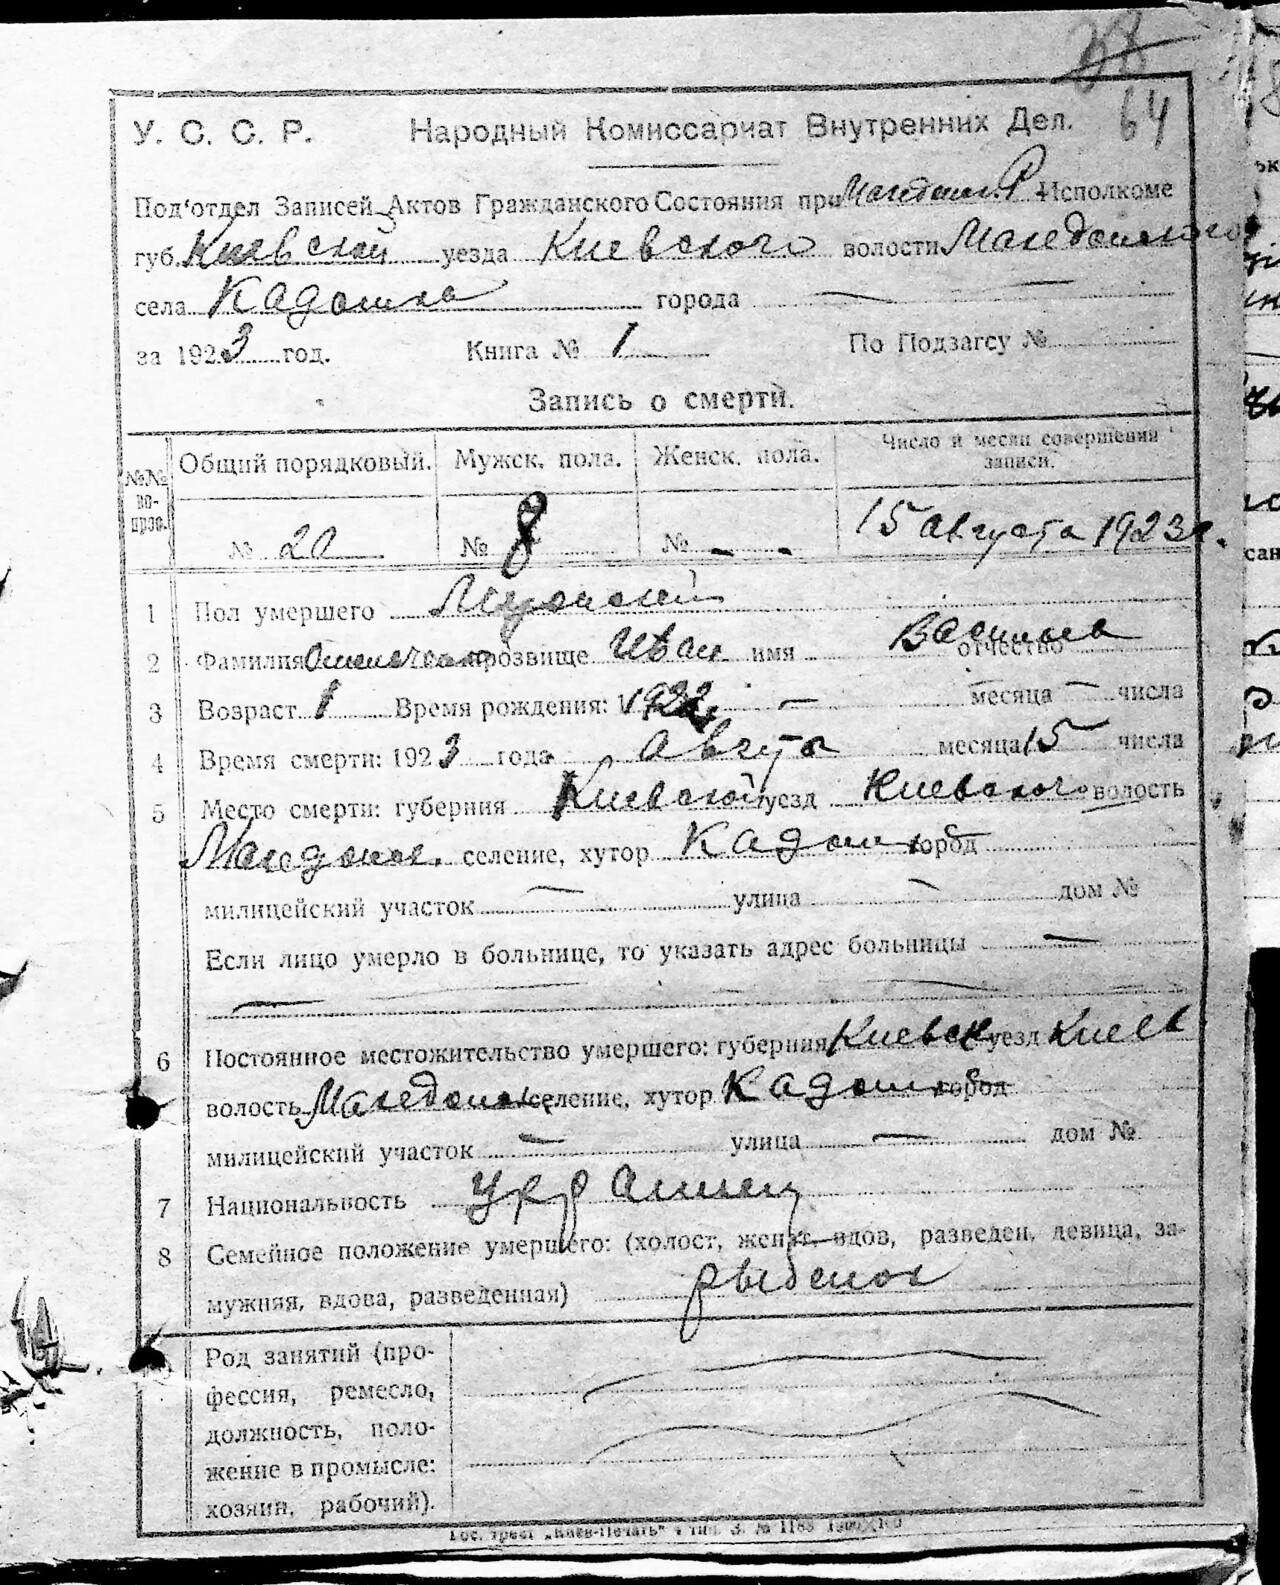 38
64
У. С. С. Р. Народный Комиссариат Внутренних Дел.
Под'отдел Записей Актов Гражданского Состояния при Исполкоме
губ. Киевской уезда Киевского волости Македонского
села Кадомка города —
за 1923 год. Книга № 1 По Подзагсу №
Запись о смерти.
№№ вопрос. Общий порядковый. Мужск. пола. Женск. пола. Число и месяц совершения записи.
№ 20 № 8 № - - 15 августа 1923 г.
1 Пол умершего Мужской
2 Фамилия прозвище Иван имя отчество
3 Возраст 1 Время рождения: 1922 — месяца — числа
4 Время смерти: 1923 года Августа месяца 15 числа
5 Место смерти: губерния Киевской уезд Киевского волость
Македонск. селение, хутор Кадомка город
милицейский участок — улица — дом №
Если лицо умерло в больнице, то указать адрес больницы —
6 Постоянное местожительство умершего: губерния Киевск уезд Киев
волость Македонск. селение, хутор Кадомка город
милицейский участок — улица — дом №
7 Национальность Украинец
8 Семейное положение умершего: (холост, женат, вдов, разведен, девица, за-
мужняя, вдова, разведенная)
Род занятий (про-
фессия, ремесло,
должность, поло-
жение в промысле:
хозяин, рабочий).
Гос. трест „Киев-Печать“ 4 тип. З. № 1188